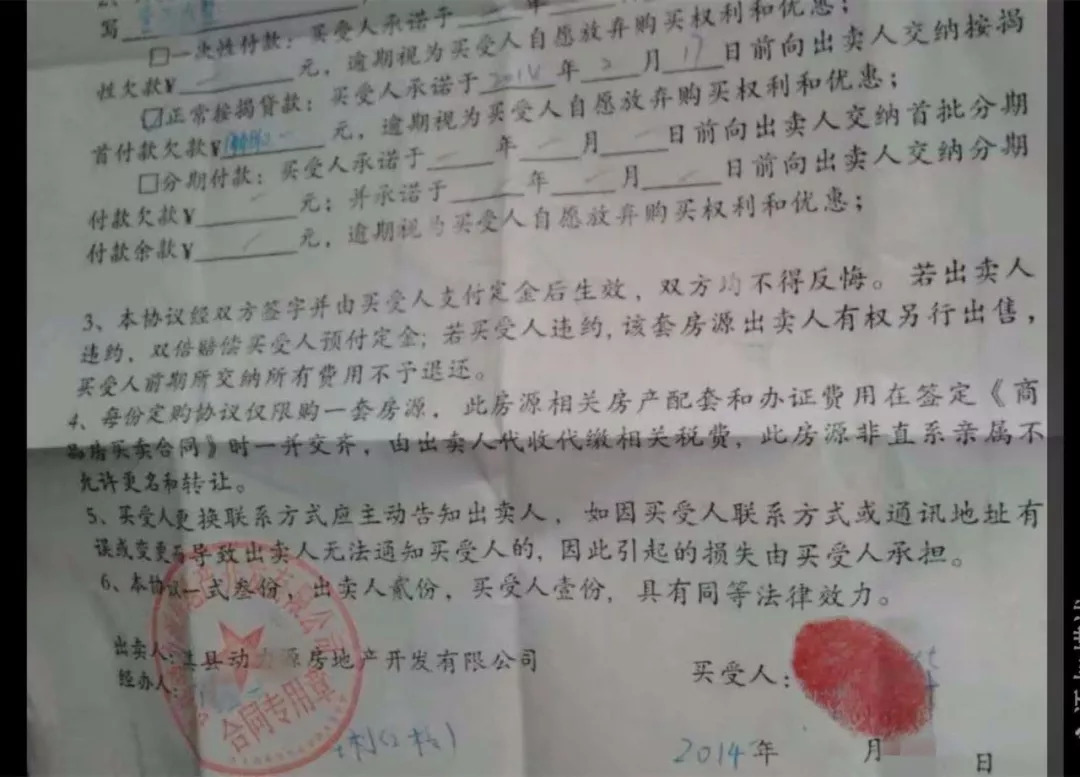 写
□一次性付款：买受人承诺于 年 月 日前向出卖人交纳按揭
性欠款¥ 元，逾期视为买受人自愿放弃购买权利和优惠；
☑正常按揭贷款：买受人承诺于2014年2月17日前向出卖人交纳按揭
首付款欠款¥ 元，逾期视为买受人自愿放弃购买权利和优惠；
□分期付款：买受人承诺于 年 月 日前向出卖人交纳首批分期
付款欠款¥ 元；并承诺于 年 月 日前向出卖人交纳分期
付款余款¥ 元，逾期视为买受人自愿放弃购买权利和优惠；
3、本协议经双方签字并由买受人支付定金后生效，双方均不得反悔。若出卖人
违约，双倍赔偿买受人预付定金；若买受人违约，该套房源出卖人有权另行出售，
买受人前期所交纳所有费用不予退还。
4、每份定购协议仅限购一套房源，此房源相关房产配套和办证费用在签定《商
品房买卖合同》时一并交齐，由出卖人代收代缴相关税费，此房源非直系亲属不
允许更名和转让。
5、买受人更换联系方式应主动告知出卖人，如因买受人联系方式或通讯地址有
误或变更而导致出卖人无法通知买受人的，因此引起的损失由买受人承担。
6、本协议一式叁份，出卖人贰份，买受人壹份，具有同等法律效力。
出卖人：淇县动力源房地产开发有限公司
经办人：
买受人：
合同专用章
2014年 月 日